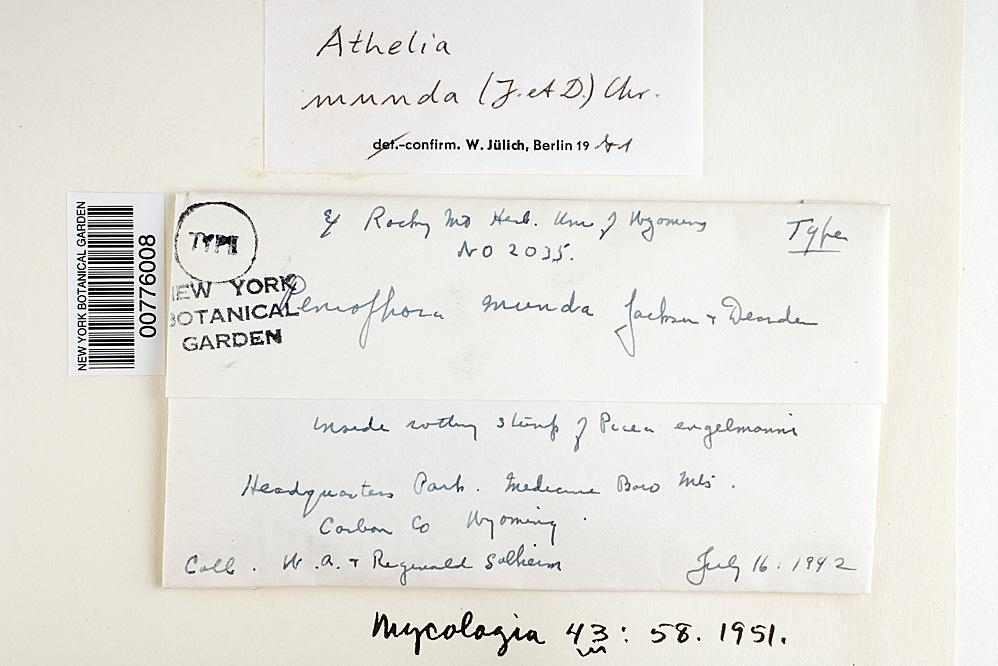 Athelia
munda (J. et D.) Chr.
det.-confirm. W. Jülich, Berlin 19
NEW YORK BOTANICAL GARDEN
00776008
TYPE
Ex Rocky Mt Herb. Univ of Wyoming
Type
NO 2035.
NEW YORK
BOTANICAL
GARDEN
Peniophora munda Jackson & Dearden
inside rotting stump of Picea engelmanni
Headquarters Park. Medicine Bow Mts.
Carbon Co Wyoming.
Coll. W. A. & Reginald Solheim July 16. 1942
Mycologia 43: 58. 1951.